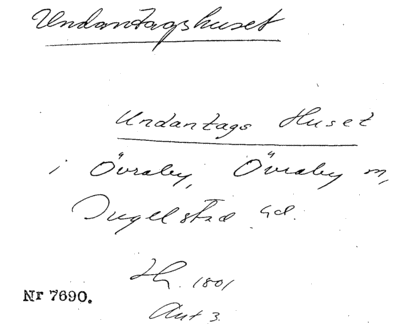 Undantagshuset
Undantags Huset
i Övraby, Övraby sn,
Ingelstad hd.
Hf. 1801
Akt 3.
Nr 7690.